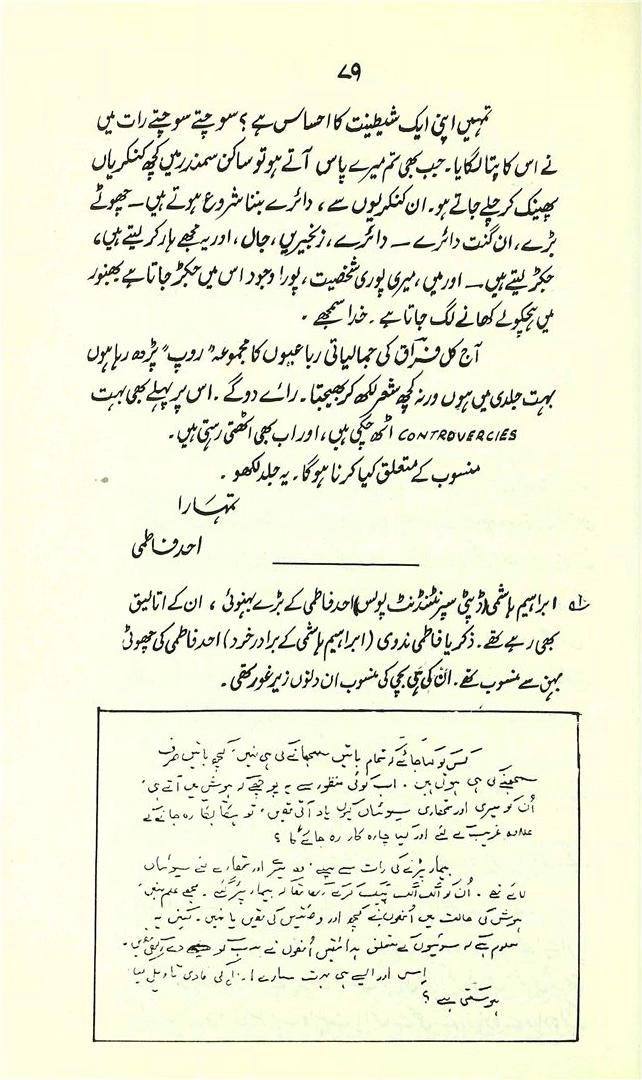 ۷۹
تمہیں اپنی ایک شیطینت کا احساس ہے؟ سوچتے سوچتے رات میں
نے اس کا پتا لگایا۔ جب بھی تم میرے پاس آتے ہو تو ساکن سمندر میں کچھ کنکریاں
پھینک کر چلے جاتے ہو۔ ان کنکریوں سے، دائرے بننا شروع ہوتے ہیں — چھوٹے
بڑے، ان گنت دائرے — دائرے، زنجیریں، جال، اور یہ مجھے ہار کر لیتے ہیں،
جکڑ لیتے ہیں — اور میں، میری پوری شخصیت، پورا وجود اس میں جکڑ جاتا ہے بھنور
میں ہچکولے کھانے لگ جاتا ہے۔ خدا سمجھے۔
آج کل فراق کی جمالیاتی رباعیوں کا مجموعہ "روپ" پڑھ رہا ہوں
بہت جلدی میں ہوں ورنہ کچھ شعر لکھ کر بھیجتا۔ رائے دو گے۔ اس پر پہلے بھی بہت
CONTROVERCIES اٹھ چکی ہیں، اور اب بھی اٹھتی رہتی ہیں۔
منسوب کے متعلق کیا کرنا ہو گا۔ یہ جلد لکھو۔
تمہارا
احمد فاطمی
ابراہیم ہاشمی (ڈپٹی سپرنٹنڈنٹ پولس) احمد فاطمی کے بڑے بہنوئی، ان کے اتالیق
بھی رہے تھے۔ ذکریا فاطمی ندوی (ابراہیم ہاشمی کے برادر خرد) احمد فاطمی کی چھوٹی
بہن سے منسوب تھے۔ ان کی بچی کی منسوب ان دنوں زیر غور تھی۔
کس کو کیا جائے کہ تمام باتیں سمجھانے کی ہی نہیں، کچھ باتیں صرف
سمجھنے کی ہی ہوتی ہیں۔ اب کوئی منظور سے یہ پوچھے کہ ہوش میں آتے ہی
اُن کو میری اور تمھاری سوئیاں کیوں یاد آتی تھیں، تو ہکا بکا رہ جانے کے
علاوہ غریب کے لئے اور کیا چارہ کار رہ جائے گا؟
بیمار پڑنے کی رات سے پہلے، اور تمھارے لئے سوئیاں
لائے تھے۔ اُن کو الگ الگ پیک کر کے بیمار پڑ گئے۔ مجھے علم نہیں
ہوش کی حالت میں اُنھوں نے کچھ اور وصیتیں کی تھیں یا نہیں۔ لیکن یہ
معلوم ہے کہ سوئیوں کے متعلق ہدائتیں اُنھوں نے سب کو دے رکھی تھیں۔
اِس اور ایسے ہی بہت سارے
ہو سکتی ہے؟